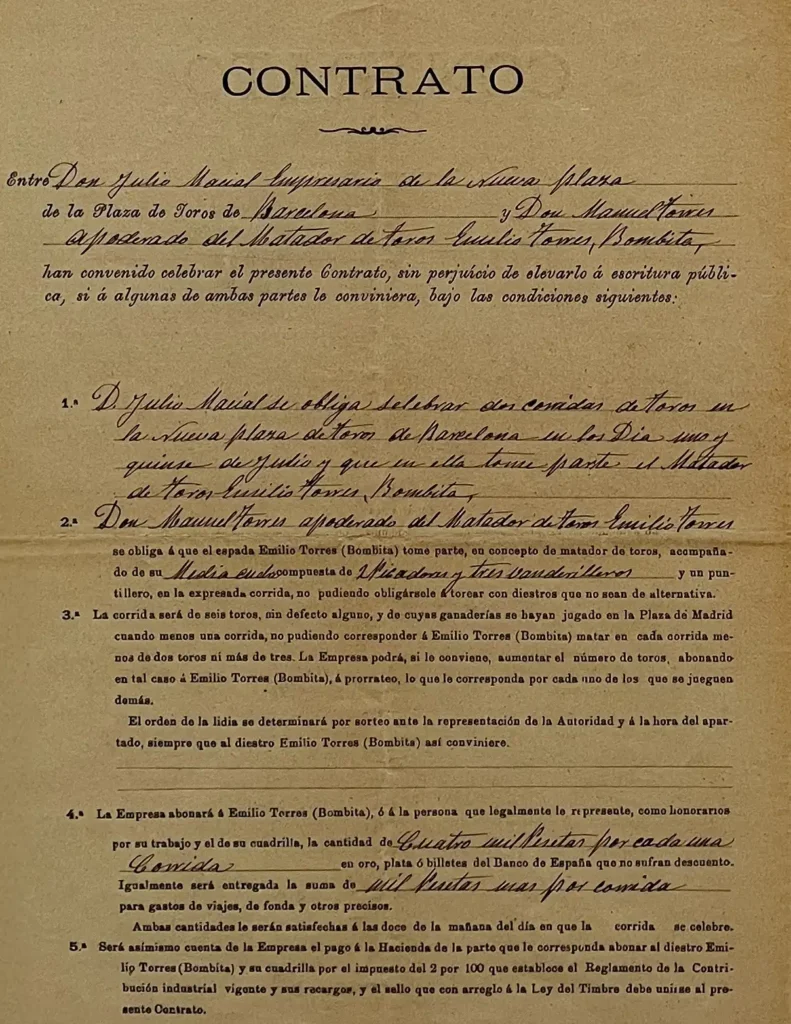 CONTRATO
Entre Don Julio Marial Empresario de la Nueva plaza
de la Plaza de Toros de Barcelona y Don Manuel Torres
apoderado del Matador de toros Emilio Torres, Bombita,
han convenido celebrar el presente Contrato, sin perjuicio de elevarlo á escritura públi-
ca, si á algunas de ambas partes le conviniera, bajo las condiciones siguientes:
1.ª D. Julio Marial se obliga selebrar dos corridas de toros en
la Nueva plaza de toros de Barcelona en los Dia uno y
quinse de Julio y que en ella tome parte el Matador
de toros Emilio Torres, Bombita,
2.ª Don Manuel Torres apoderado del Matador de toros Emilio Torres
se obliga á que el espada Emilio Torres (Bombita) tome parte, en concepto de matador de toros, acompaña-
do de su Media cuda compuesta de 2 Picadores y tres vanderilleros y un pun-
tillero, en la expresada corrida, no pudiendo obligársele á torear con diestros que no sean de alternativa.
3.ª La corrida será de seis toros, sin defecto alguno, y de cuyas ganaderías se hayan jugado en la Plaza de Madrid
cuando menos una corrida, no pudiendo corresponder á Emilio Torres (Bombita) matar en cada corrida me-
nos de dos toros ni más de tres. La Empresa podrá, si le conviene, aumentar el número de toros, abonando
en tal caso á Emilio Torres (Bombita), á prorrateo, lo que le corresponda por cada uno de los que se jueguen
demás.
El orden de la lidia se determinará por sorteo ante la representación de la Autoridad y á la hora del apar-
tado, siempre que al diestro Emilio Torres (Bombita) así conviniere.
4.ª La Empresa abonará á Emilio Torres (Bombita), ó á la persona que legalmente le represente, como honorarios
por su trabajo y el de su cuadrilla, la cantidad de Cuatro mil Pesetas por cada una
Corrida en oro, plata ó billetes del Banco de España que no sufran descuento.
Igualmente será entregada la suma de mil Pesetas mas por corrida
para gastos de viajes, de fonda y otros precisos.
Ambas cantidades le serán satisfechas á las doce de la mañana del día en que la corrida se celebre.
5.ª Será asímismo cuenta de la Empresa el pago á la Hacienda de la parte que le corresponda abonar al diestro Emi-
lio Torres (Bombita) y su cuadrilla por el impuesto del 2 por 100 que establece el Reglamento de la Contri-
bución industrial vigente y sus recargos, y el sello que con arreglo á la Ley del Timbre debe unirse al pre-
sente Contrato.